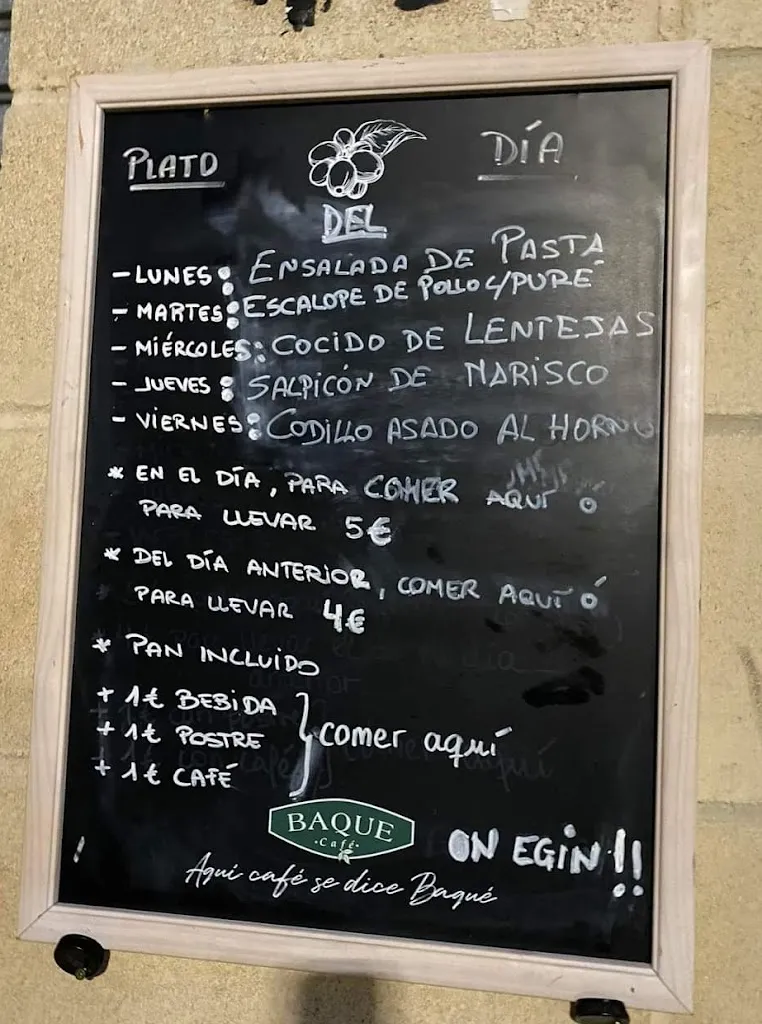 PLATO DEL DÍA
- LUNES: ENSALADA DE PASTA
- MARTES: ESCALOPE DE POLLO C/PURÉ
- MIÉRCOLES: COCIDO DE LENTEJAS
- JUEVES: SALPICÓN DE MARISCO
- VIERNES: CODILLO ASADO AL HORNO
* EN EL DÍA, PARA COMER AQUÍ O
PARA LLEVAR 5€
* DEL DÍA ANTERIOR, COMER AQUÍ Ó
PARA LLEVAR 4€
* PAN INCLUIDO
+ 1€ BEBIDA
+ 1€ POSTRE } comer aquí
+ 1€ CAFÉ
BAQUE
Café
ON EGIN!!
Aquí café se dice Baqué